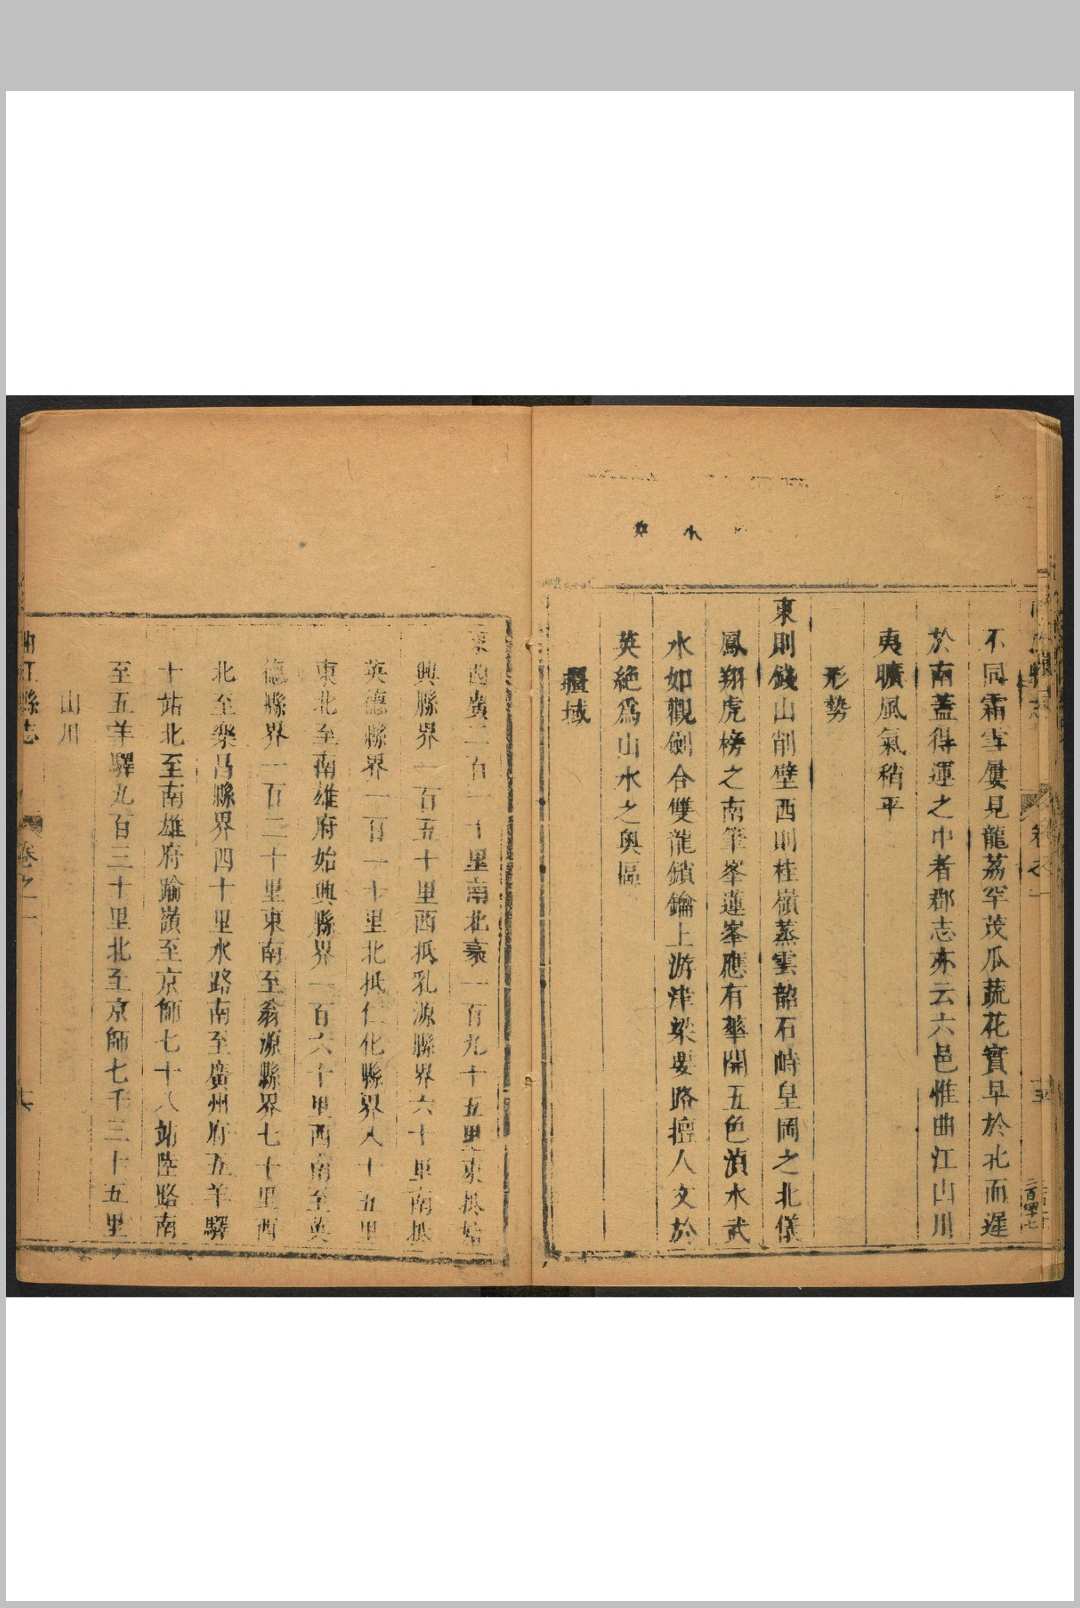 不同霜雪屢見龍荔罕茂瓜蔬花實早於北而遲
於南蓋得運之中者郡志亦云六邑惟曲江山川
夷曠風氣稍平
形勢
東則錢山削壁西則桂嶺蒸雲韶石峙皇岡之北儀
鳳翔虎榜之南筆峯蓮峯應有華開五色湞水武
水如觀劍合雙龍鎖鑰上游津梁要路擅人文於
英絶爲山水之奥區
疆域
東西廣二百一十里南北袤一百九十五里東抵始
興縣界一百五十里西抵乳源縣界六十里南抵
英德縣界一百一十里北抵仁化縣界八十五里
東北至南雄府始興縣界一百六十里西南至英
德縣界一百二十里東南至翁源縣界七十里西
北至樂昌縣界四十里水路南至廣州府五羊驛
十站北至南雄府踰嶺至京師七十八站陸路南
至五羊驛九百三十里北至京師七千三十五里
山川
曲江縣志 卷之一